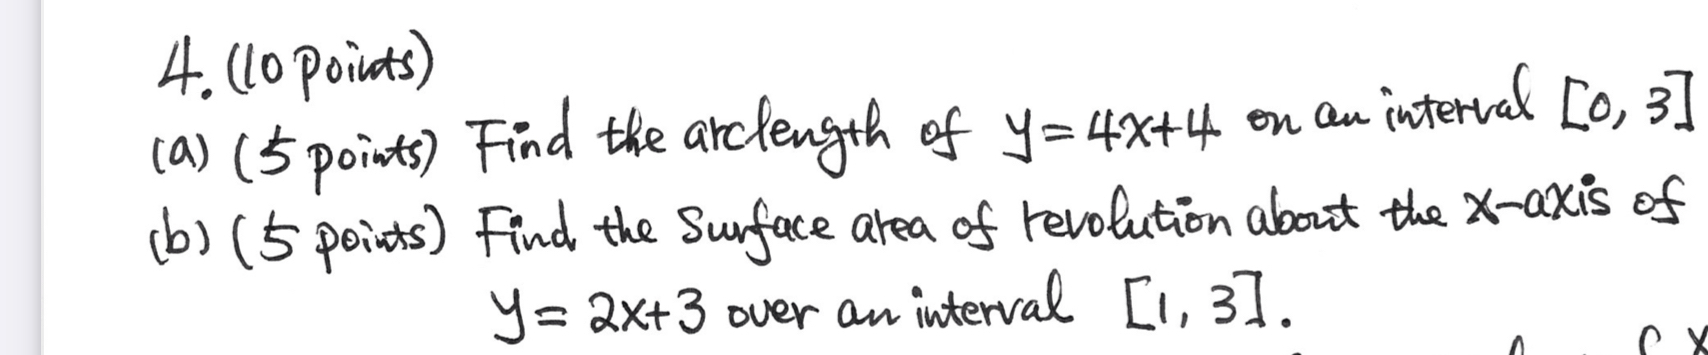 4. (10 points)
(a) (5 points) Find the arclength of y=4x+4 on an interval [0, 3]
(b) (5 points) Find the surface area of revolution about the x-axis of
y= 2x+3 over an interval [1, 3].